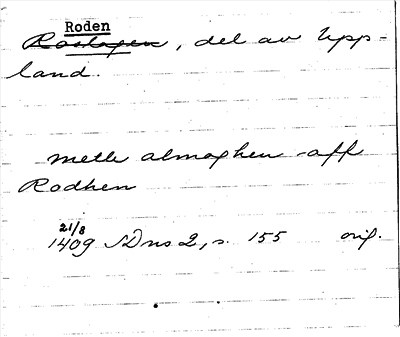 Roden
Roslagen, del av Upp-
land.
metle almoghen aff
Rodhen
21/8
1409 SDns 2, s. 155 orig.